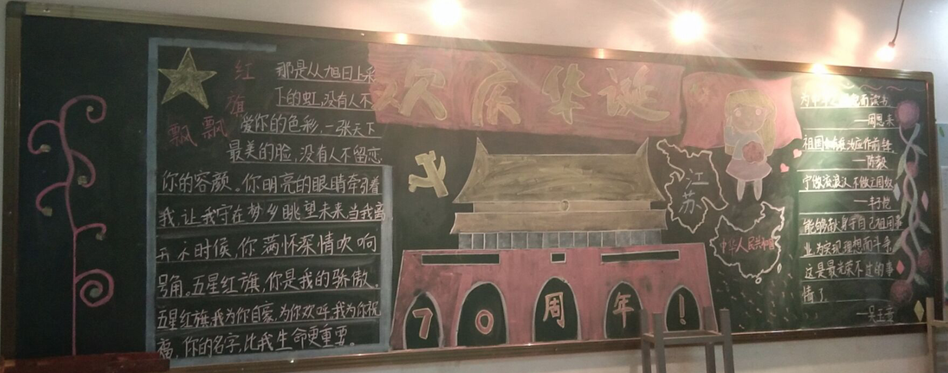 红旗飘飘
那是从旭日上采
下的虹,没有人不
爱你的色彩,一张天下
最美的脸,没有人不留恋
你的容颜。你明亮的眼睛牵引着
我,让我守在梦乡眺望未来当我离
开 时候,你满怀深情吹响
号角。五星红旗,你是我的骄傲、
五星红旗我为你自豪,为你欢呼我为你祝
福,你的名字,比我生命更重要。
欢庆华诞
70周年!
江苏
中华人民共和国
读书
——周恩来
祖国
——陈毅
宁做流浪汉 不做亡国奴
——丰子恺
能够献身于自己祖国事
业为实现理想而斗争,
这是最光荣不过的事
情了
——吴玉章